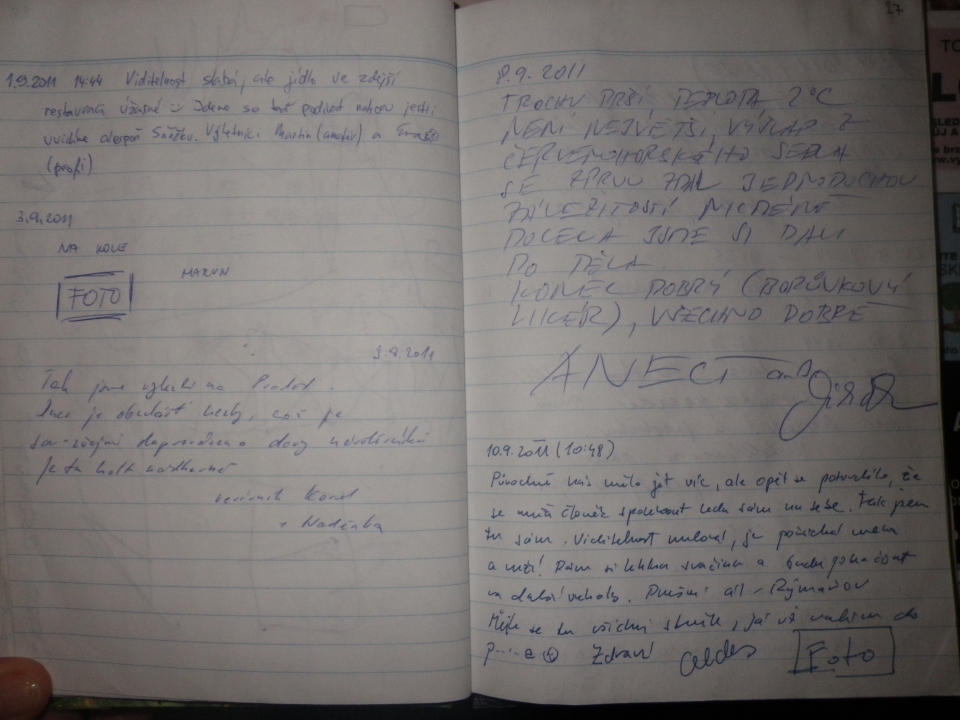 1.9.2011 14:44 Viditelnost slabá, ale jídlo ve zdejší
restauraci úžasné :-) Jdeme se teď podívat nahoru jestli
uvidíme alespoň Sněžku. Výletníci Martin (amatér) a
(profi)
3.9.2011
NA KOLE
MARTIN
FOTO
3.9.2011
Tak jsme vyjeli na Praděd.
je obzvlášť hezky, což je
doprovázeno davy návštěvníků
Je tu holt nádherně
Karel
+ Naděnka
27
8.9.2011
TROCHU PRŠÍ TEPLOTA 2°C
NENÍ NEJVĚTŠÍ, VÝŠLAP Z
ČERVENOHORSKÉHO SEDLA
SE ZPRVU ZDÁL JEDNODUCHOU
ZÁLEŽITOSTÍ NICMÉNĚ
DOCELA JSME SI DALI
DO TĚLA.
KONEC DOBRÝ (BORŮVKOVÝ
LIKÉR), VŠECHNO DOBRÉ
10.9.2011 (10:48)
Původně nás mělo jet víc, ale opět se potvrdilo, že
se musí člověk spolehnout leda sám na sebe. Tak jsem
tu sám. Viditelnost nulová, je pořádná zima
a mží! Dám si lehkou svačinu a budu pokračovat
na další vrcholy. Dnešní cíl - Rýmařov
Mějte se tu všichni skvěle, já už valím do
p....e Zdraví
Foto